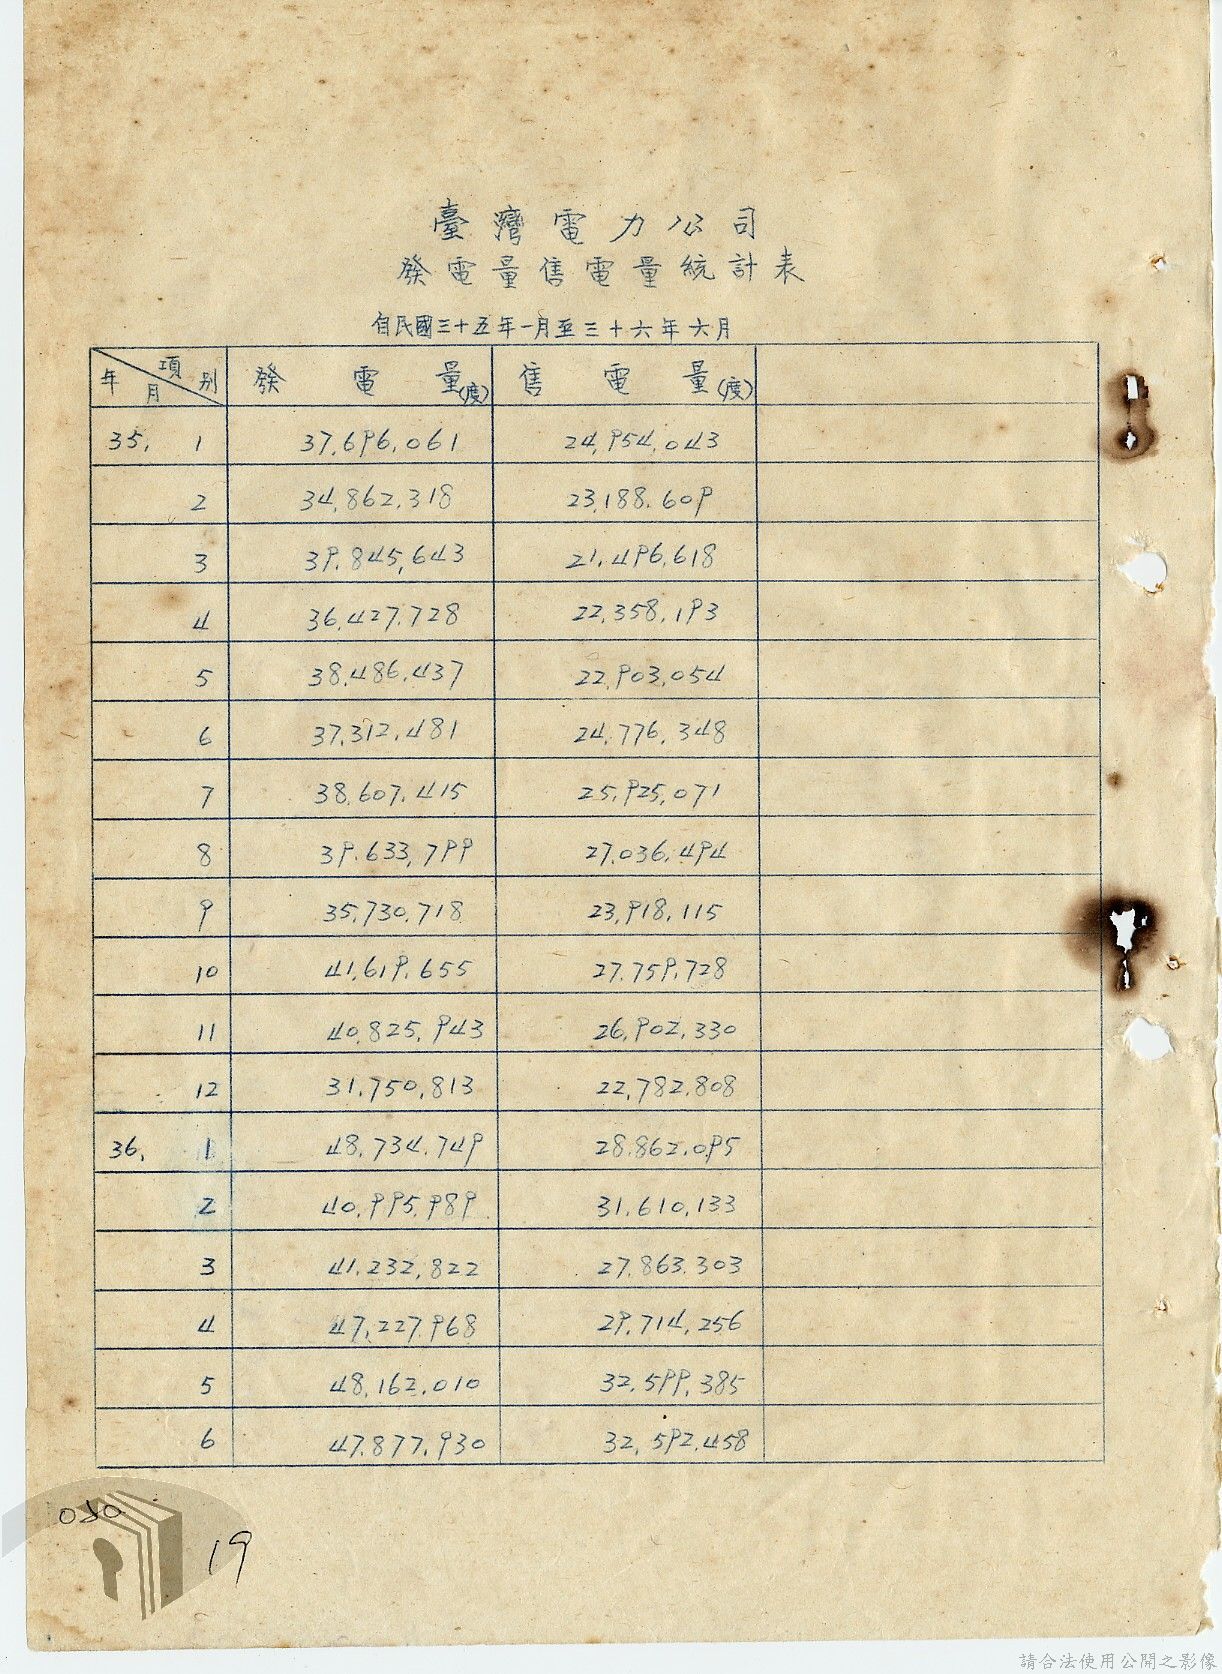 臺灣電力公司
發電量售電量統計表
自民國三十五年一月至三十六年六月
年月 項別 發電量(度) 售電量(度)
35. 1 37,696,061 24,954,043
2 34,862,318 23,188,609
3 39,845,643 21,496,618
4 36,427,728 22,358,193
5 38,486,437 22,903,054
6 37,312,481 24,776,348
7 38,607,415 25,925,071
8 39,633,799 27,036,494
9 35,730,718 23,918,115
10 41,619,655 27,759,728
11 40,825,943 26,902,330
12 31,750,813 22,782,808
36. 1 48,734,749 28,862,095
2 40,995,989 31,610,133
3 41,232,822 27,863,303
4 47,227,968 29,714,256
5 48,162,010 32,599,385
6 47,877,930 32,592,458
19
請合法使用公開之影像